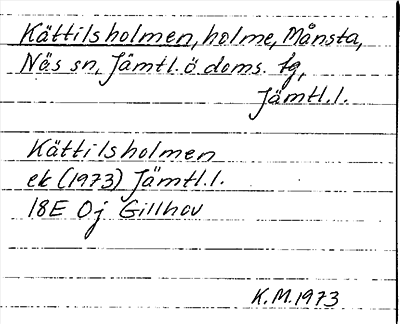 Kättilsholmen, holme, Månsta,
Näs sn, Jämtl. ö. doms. tg,
Jämtl.l.
Kättilsholmen
ek (1973) Jämtl.l.
18E Oj Gillhov
K.M.1973